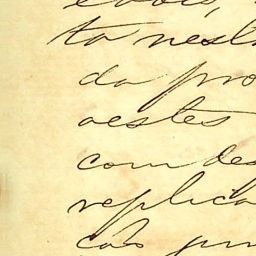 ta nest
da pro
aestes
com des
replica
cão pu